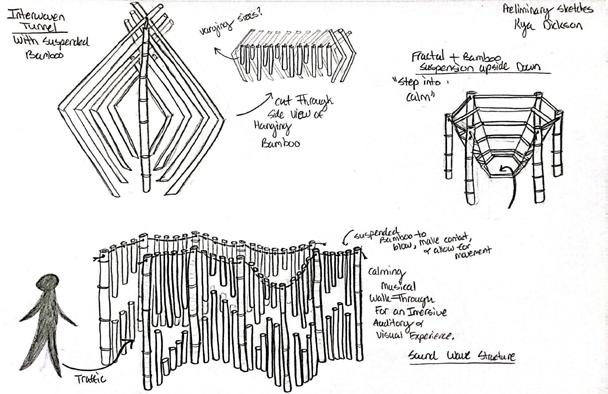 Interwoven
Tunnel
With Suspended
Bamboo
varying sizes?
cut Through
side view of
Hanging
Bamboo
Preliminary Sketches
Kya Dickson
Fractal + Bamboo
Suspension upside Down
"Step into
calm"
suspended
Bamboo to
blow, make contact,
or allow for
movement
calming
musical
Walk-Through
For an Imersive
Auditory &
Visual Experience.
Sound Wave Structure
Traffic